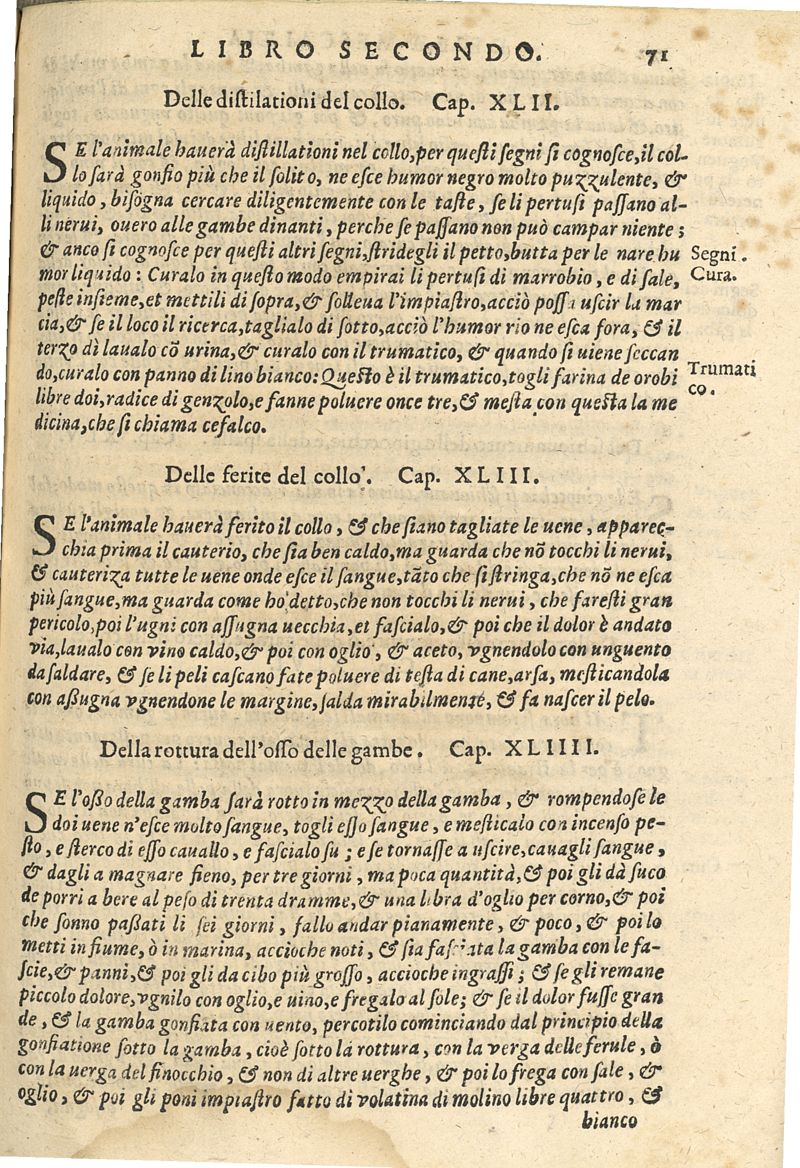 LIBRO SECONDO. 71
Delle distilationi del collo. Cap. XLII.
SE l'animale hauerà distillationi nel collo, per questi segni si cognosce, il col-
lo sarà gonfio più che il solito, ne esce humor negro molto puzzulente, &
liquido, bisogna cercare diligentemente con le taste, se li pertusi passano al-
li nerui, ouero alle gambe dinanti, perche se passano non può campar niente;
& anco si cognosce per questi altri segni, stridegli il petto, butta per le nare hu
Segni.
mor liquido: Curalo in questo modo empirai li pertusi di marrobio, e di sale,
Cura.
peste insieme, et mettili di sopra, & solleua l'impiastro, acciò possa uscir la mar
cia, & se il loco il ricerca, taglialo di sotto, acciò l'humor rio ne esca fora, & il
terzo dì laualo cō urina, & curalo con il trumatico, & quando si uiene seccan
do, curalo con panno di lino bianco: Questo è il trumatico, togli farina de orobi
Trumati
co.
libre doi, radice di genzolo, e fanne poluere once tre, & mesta con questa la me
dicina, che si chiama cefalco.
Delle ferite del collo. Cap. XLIII.
SE l'animale hauerà ferito il collo, & che siano tagliate le uene, apparec-
chia prima il cauterio, che sia ben caldo, ma guarda che nō tocchi li nerui,
& cauteriza tutte le uene onde esce il sangue, tāto che si stringa, che nō ne esca
più sangue, ma guarda come ho detto, che non tocchi li nerui, che faresti gran
pericolo, poi l'ugni con assugna uecchia, et fascialo, & poi che il dolor è andato
via, laualo con vino caldo, & poi con oglio, & aceto, vgnendolo con unguento
da saldare, & se li peli cascano fate poluere di testa di cane, arsa, mesticandola
con assugna vgnendone le margine, salda mirabilmente, & fa nascer il pelo.
Della rottura dell'osso delle gambe. Cap. XLIIII.
SE l'osso della gamba sarà rotto in mezzo della gamba, & rompendose le
doi uene n'esce molto sangue, togli esso sangue, e mesticalo con incenso pe-
sto, e sterco di esso cauallo, e fascialo su; e se tornasse a uscire, cauagli sangue,
& dagli a magnare fieno, per tre giorni, ma poca quantità, & poi gli dà suco
de porri a bere al peso di trenta dramme, & una libra d'oglio per corno, & poi
che sonno passati li sei giorni, fallo andar pianamente, & poco, & poi lo
metti in fiume, ò in marina, accioche noti, & sia fasciata la gamba con le fa-
scie, & panni, & poi gli da cibo più grosso, accioche ingrassi; & se gli remane
piccolo dolore, vgnilo con oglio, e uino, e fregalo al sole; & se il dolor fusse gran
de, & la gamba gonfiata con uento, percotilo cominciando dal principio della
gonfiatione sotto la gamba, cioè sotto la rottura, con la verga delle ferule, ò
con la uerga del finocchio, & non di altre uerghe, & poi lo frega con sale, &
oglio, & poi gli poni impiastro fatto di volatina di molino libre quattro, &
bianco